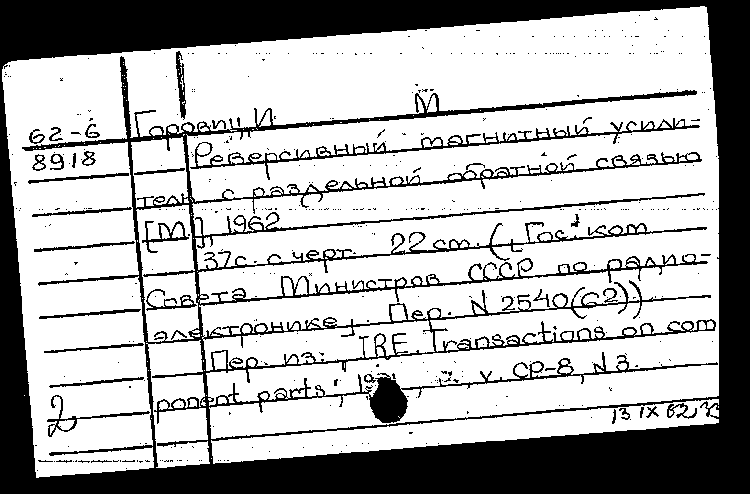 М
62-6 Горовиц, И.
8918 Реверсивный магнитный усили-
тель с раздельной обратной связью
[М], 1962
37с. с черт. 22 см. („Гос. ком
Совета Министров СССР по радио-
электронике". Пер. N 2540(62))
Пер. из: „IRE. Transactions on com
ponent parts", v. CP-8, N 3.
2
13 IX 62